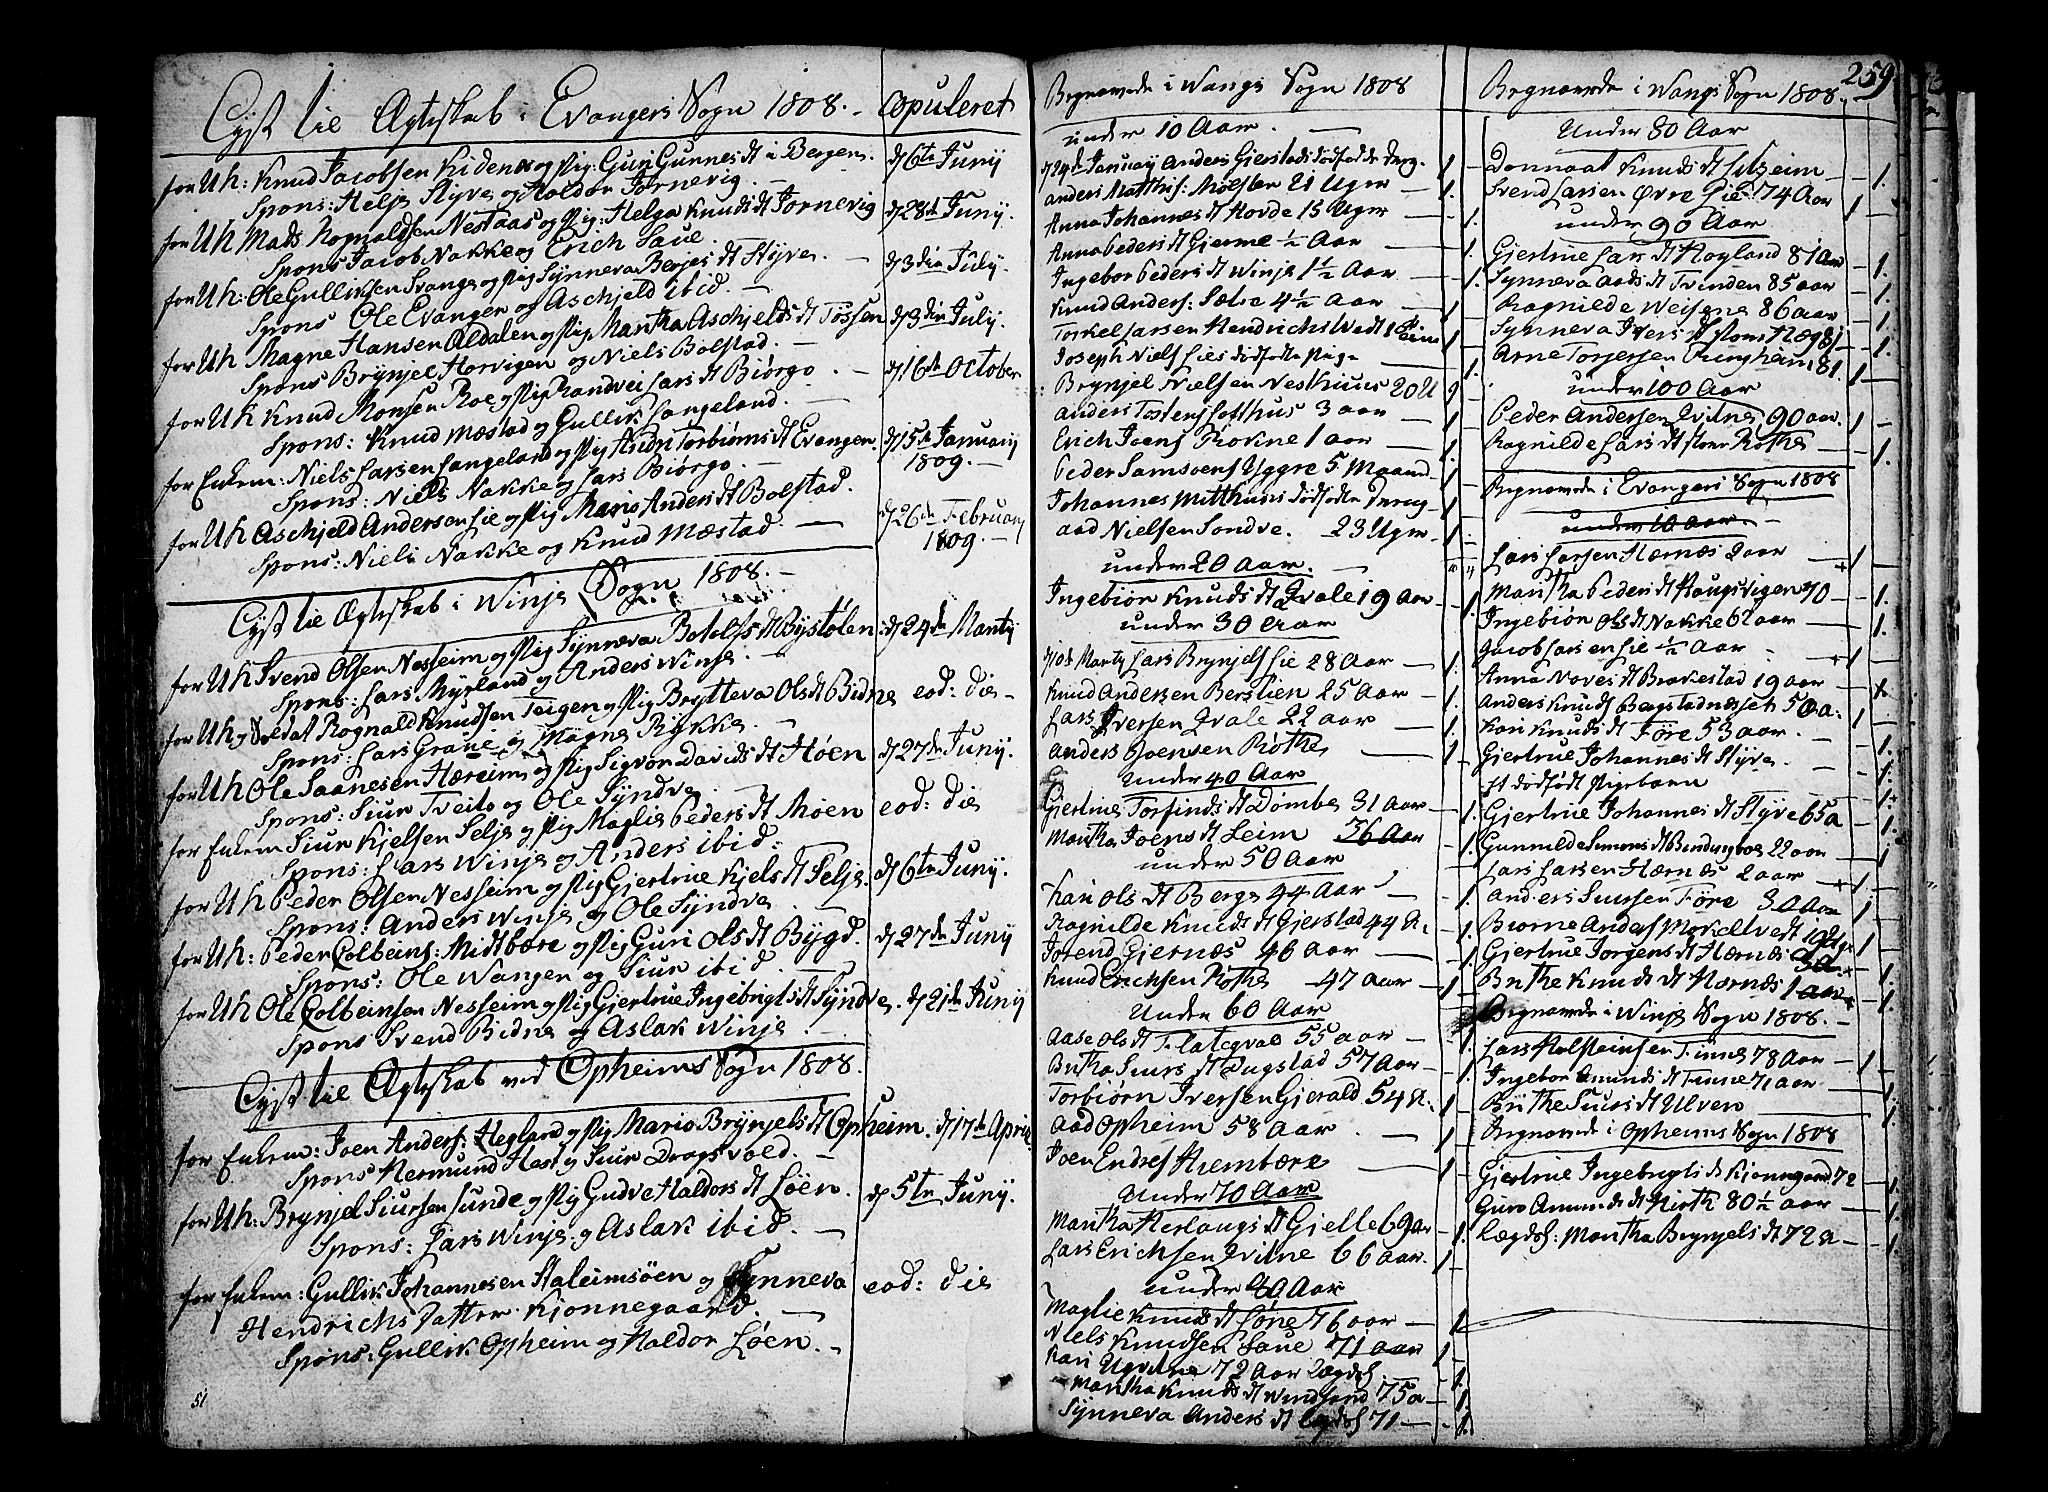 Lyst til Ægteskab i Evangers Sogn 1808. - Copuleret
for Uk: Knud Jacobsen Kidene og Pig: Guri Gunnesdt i Bergen. d 6te Junÿ
Spons: Helje Styve og Haldor Fornevig. -
for Uk Mads Rognaldsen Nestaas og Pig: Helga Knudsdt Fornevig d 28de Junÿ.
Spons Jacob Nakke og Erich Saue.
for Uk: Ole Gulliksen Evanger og Pig Synneva Berjesdt Styve. - d 3die Julÿ.
Spons Ole Evanger og Aschjeld ibid. -
for Uk Magne Hansen Aldalen og Pig Martha Aschjeldsdt Fossen d 3die Julÿ.
Spons Brynjel Horvigen og Niels Bolstad. -
for Uk Knud Monsen Roe og Pig Randvei Larsdt Biørgo. - d 16de October
Spons: Knud Mæstad og Gullik Langeland. -
for Enkem: Niels Larsen Langeland og Pig Asidn Torbiørnsdt Evanger. d 15de Januarÿ 1809. -
Spons: Niels Nakke og Lars Biørgo. -
for Uk Aschjeld Andersen Lie og Pig Mario Andersdt Bolstad. d 26de Februarÿ 1809. -
Spons: Niels Nakke og Knud Mæstad. -
Lyst til Ægteskab i Winje Sogn 1808. -
for Uk Svend Olsen Nesheim og Pig Synneva Botolfsdt Bystølen d 24de Martÿ
Spons: Lars Myrland og Anders Winje. -
for Uk og Soldat Rognald Knudsen Teigen og Pig Brytteva Olsdt Bidne eod: die -
Spons: Lars Graue og Magne Rykke. -
for Uk Ole Saanesen Hæreim og Pig Sigvor Davidsdt Høen d 27de Junÿ.
Spons: Siur Tveito og Ole Syndve. -
for Enkem Siur Kjelsen Selje og Pig Maglie Pedersdt Moen eod: die
Spons: Lars Winje og Anders ibid:
for Uk Peder Olsen Nesheim og Pig Giertrue Kjelsdt Selje. d 6te Junÿ.
Spons: Anders Winje og Ole Syndve. -
for Uk: Peder Colbeins: Midtbære og Pig Guri Olsdt Bygd. d 27de Junÿ
Spons: Ole Wangen og Siur ibid. -
for Uk Ole Colbeinsen Nesheim og Pig Giertrue Ingebrigtsdt Syndve. d 21de Junÿ
Spons Svend Bidne og Aslak Winje. -
Lyst til Ægteskab ved Opheims Sogn 1808.
for Enkem: Joen Anders: Hegland og Pig Mario Brynjelsdt Opheim. d 17de April
Spons Hermund Hæsty Siur Dragsvold. -
for Uk: Brynjel Siursen Sunde og Pig Gudve Haldorsdt Løen. d 5te Junÿ.
Spons: Lars Winje og Aslak ibid. -
for Enkem: Gullik Johannesen Haleimsøen og Synneva eod: die
Hendrichs Datter Kionnegaard. -
Spons: Gullik Opheim og Haldor Løen. -
51
Begravede i Wangs Sogn 1808
under 10 Aar. -
d 24de Januarÿ Anders Gierstads dødfødte Dreng. 1
Anders Matthis: Mølster 21 Uger 1.
Anna Johannesdt Hovde 15 Uger 1.
Anna Pedersdt Gierme ½ Aar 1.
Ingebor Pedersdt Winje 1½ Aar 1.
Knud Anders: Sætre 4½ Aar 1
Torkel Larsen Hendrichs 1
Joseph Niels: Lies dødfødte Pige 1.
Brynjel Nielsen Neskhuus 20 U 1
Anders Tostens: Lofthus 3 aar 1
Erich Joens: Rokne 1 aar 1
Peder Samsoens: Yggre 5 Maaned 1
Johannes Mitthuns dødfødte Dreng 1
Aad Nielsen Sondve. 23 Uger. 1
under 20 Aar. -
Ingebiør Knudsdt Qvale 19 aar 1.
under 30 Aar
d 10de Martÿ Lars Brynjels: Lie 28 Aar 1.
Knud Andersen Berstien 25 Aar 1.
Lars Iversen Qvale 22 aar 1.
Anders Joensen Rothe 1
Under 40 Aar
Giertrue Torfindsdt Dømbe 31 Aar 1.
Martha Joensdt Leim 36 Aar 1.
under 50 Aar
Kari Olsdt Berge 44 Aar 1.
Ragnilde Knudsdt Gierstad 44 A. 1.
Jorend Giernæs 46 aar 1
Knud Erichsen Rothe 47 aar 1
Under 60 Aar
Aase Olsdt Flateqval 55 aar 1
Britha Siursdt Dugstad 57 Aar 1.
Torbiørn Iversen Gierald 54 A. 1
Aad Opheim 58 aar. 1
Joen Ends: Hembære 1
Under 70 Aar
Martha Herlaugsdt Gielle 69 ar 1.
Lars Erichsen Qvitne 66 aar. 1
under 80 Aar
Maglie Knudsdt Løne 76 aar 1
Niels Knudsen Saue 71 aar 1
Kari Ugvitne 72 Aar Lægdsl. 1.
Martha Knudsdt Windsand 75 a 1
Synneva Andersdt Lægdsl 71 1.
259
Begravede i Wangs Sogn 1808.
Under 80 Aar
Donnaat Knudsdt Selheim 1.
Svend Larsen Øvre Lie 74 Aar 1
under 90 Aar
Giertrue Larsdt Høyland 81 aar 1.
Synneva Aadsdt Tvinden 85 aar 1.
Ragnilde Weisene 86 aar 1.
Synneva Iversdt 1.
Arne Torjersen Ringheim 81. 1
under 100 Aar
Peder Andersen Qvitne 90 aar. 1
Ragnilde Larsdt store Rothe 1.
Begravede i Evangers Sogn 1808
under 10 aar. -
Lars Larsen Hærnæs 2 aar + 1
Martha Pedersdt Haugsvigen 70 1.
Ingebiør Olsdt Nakke 62 aar 1.
Jacob Larsen Lie ½ Aar + 1
Anna Novesdt Brakestad 19 aar +
Anders Knuds: Bergstadnesset 50 a. 1
Kari Knudsdt Føre 53 aar. 1.
Giertrue Johannesdt Styve. 1.
Et dødfødt Pigebarn 1.
Giertrue Johannesdt Styve 65 a 1.
Gunnilde Simonsdt 22 aar 1
Lars Larsen Hærnæs 2 aar + 1.
Anders Siursen Føre 30 Aar 1
Biørne Anders: Mørkelvedt 19 Uger 1
Giertrue Jørgensdt Hærnæs 3 a. + 1.
Brithe Knudsdt Hærnæs 1 aar + 1.
Begravede i Winje Sogn 1808. -
Lars Holsteinsen Finne 78 Aar 1
Ingebor Amundsdt Finne 71 aar 1.
Brithe Siursdt Ulven 1.
Begravede i Opheims Sogn 1808
Giertrue Ingebrigtsdt Kionnegaard 72 1.
Guro Amundsdt Hirth 80½ aar 1.
Lægdsl: Martha Brynjelsdt 72 a 1.